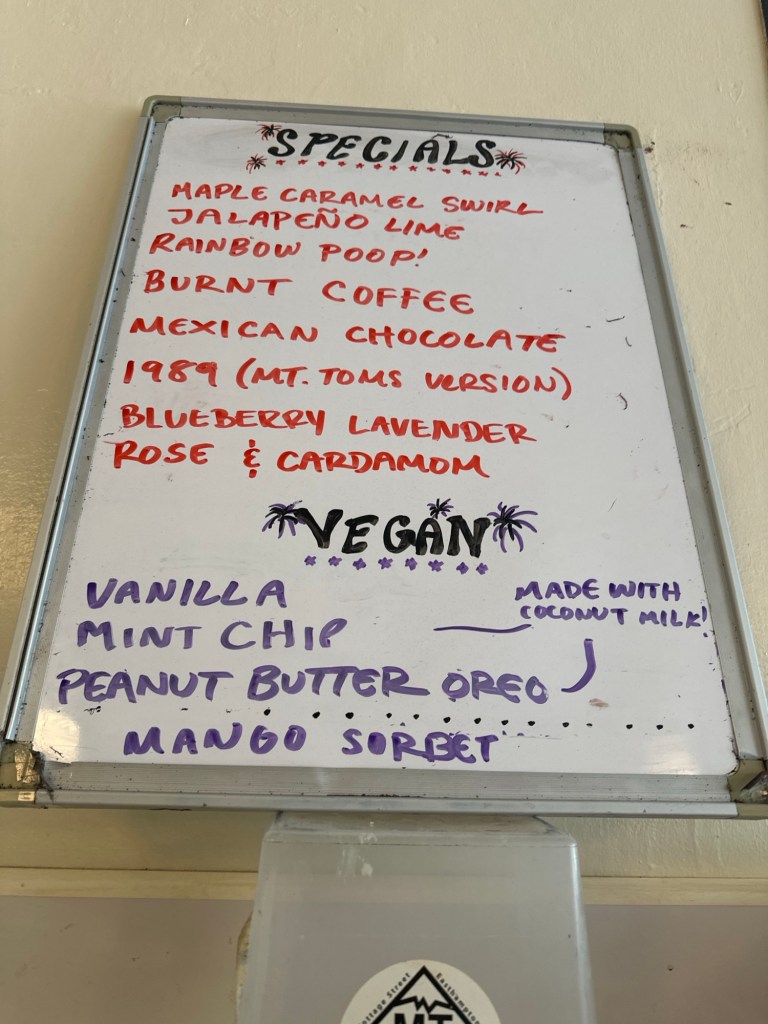 SPECIALS
MAPLE CARAMEL SWIRL
JALAPEÑO LIME
RAINBOW POOP!
BURNT COFFEE
MEXICAN CHOCOLATE
1989 (MT. TOMS VERSION)
BLUEBERRY LAVENDER
ROSE & CARDAMOM
VEGAN
VANILLA
MINT CHIP
MADE WITH
COCONUT MILK!
PEANUT BUTTER OREO
MANGO SORBET
Cottage Street Easthampton
MT